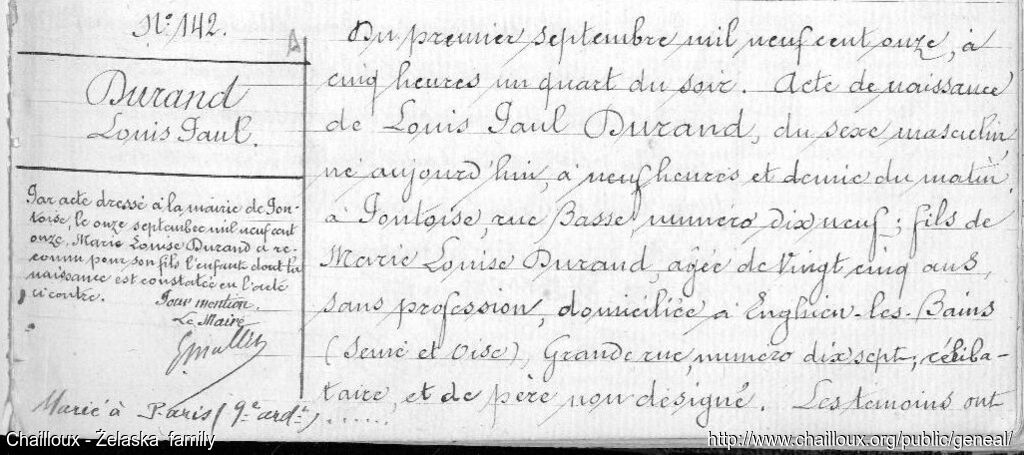 N° 142.
Durand
Louis Paul.
Par acte dressé à la mairie de Pon-
toise, le onze septembre mil neuf cent
onze, Marie Louise Durand a re-
connu pour son fils l'enfant dont la
naissance est constatée en l'acte
ci contre.
Pour mention
Le Maire
Marié à Paris (9e ardt) ......
A
Du premier septembre mil neuf cent onze, à
cinq heures un quart du soir. Acte de naissance
de Louis Paul Durand, du sexe masculin,
né aujourd'hui, à neuf heures et demie du matin,
à Pontoise, rue Basse, numéro dix neuf; fils de
Marie Louise Durand, agée de Vingt cinq ans,
sans profession, domiciliée à Enghien-les-Bains
(Seine et Oise), Grande rue, numéro dix sept, céliba-
taire, et de père non désigné. Les témoins ont
Chailloux - Żelaska family
http://www.chailloux.org/public/geneal/